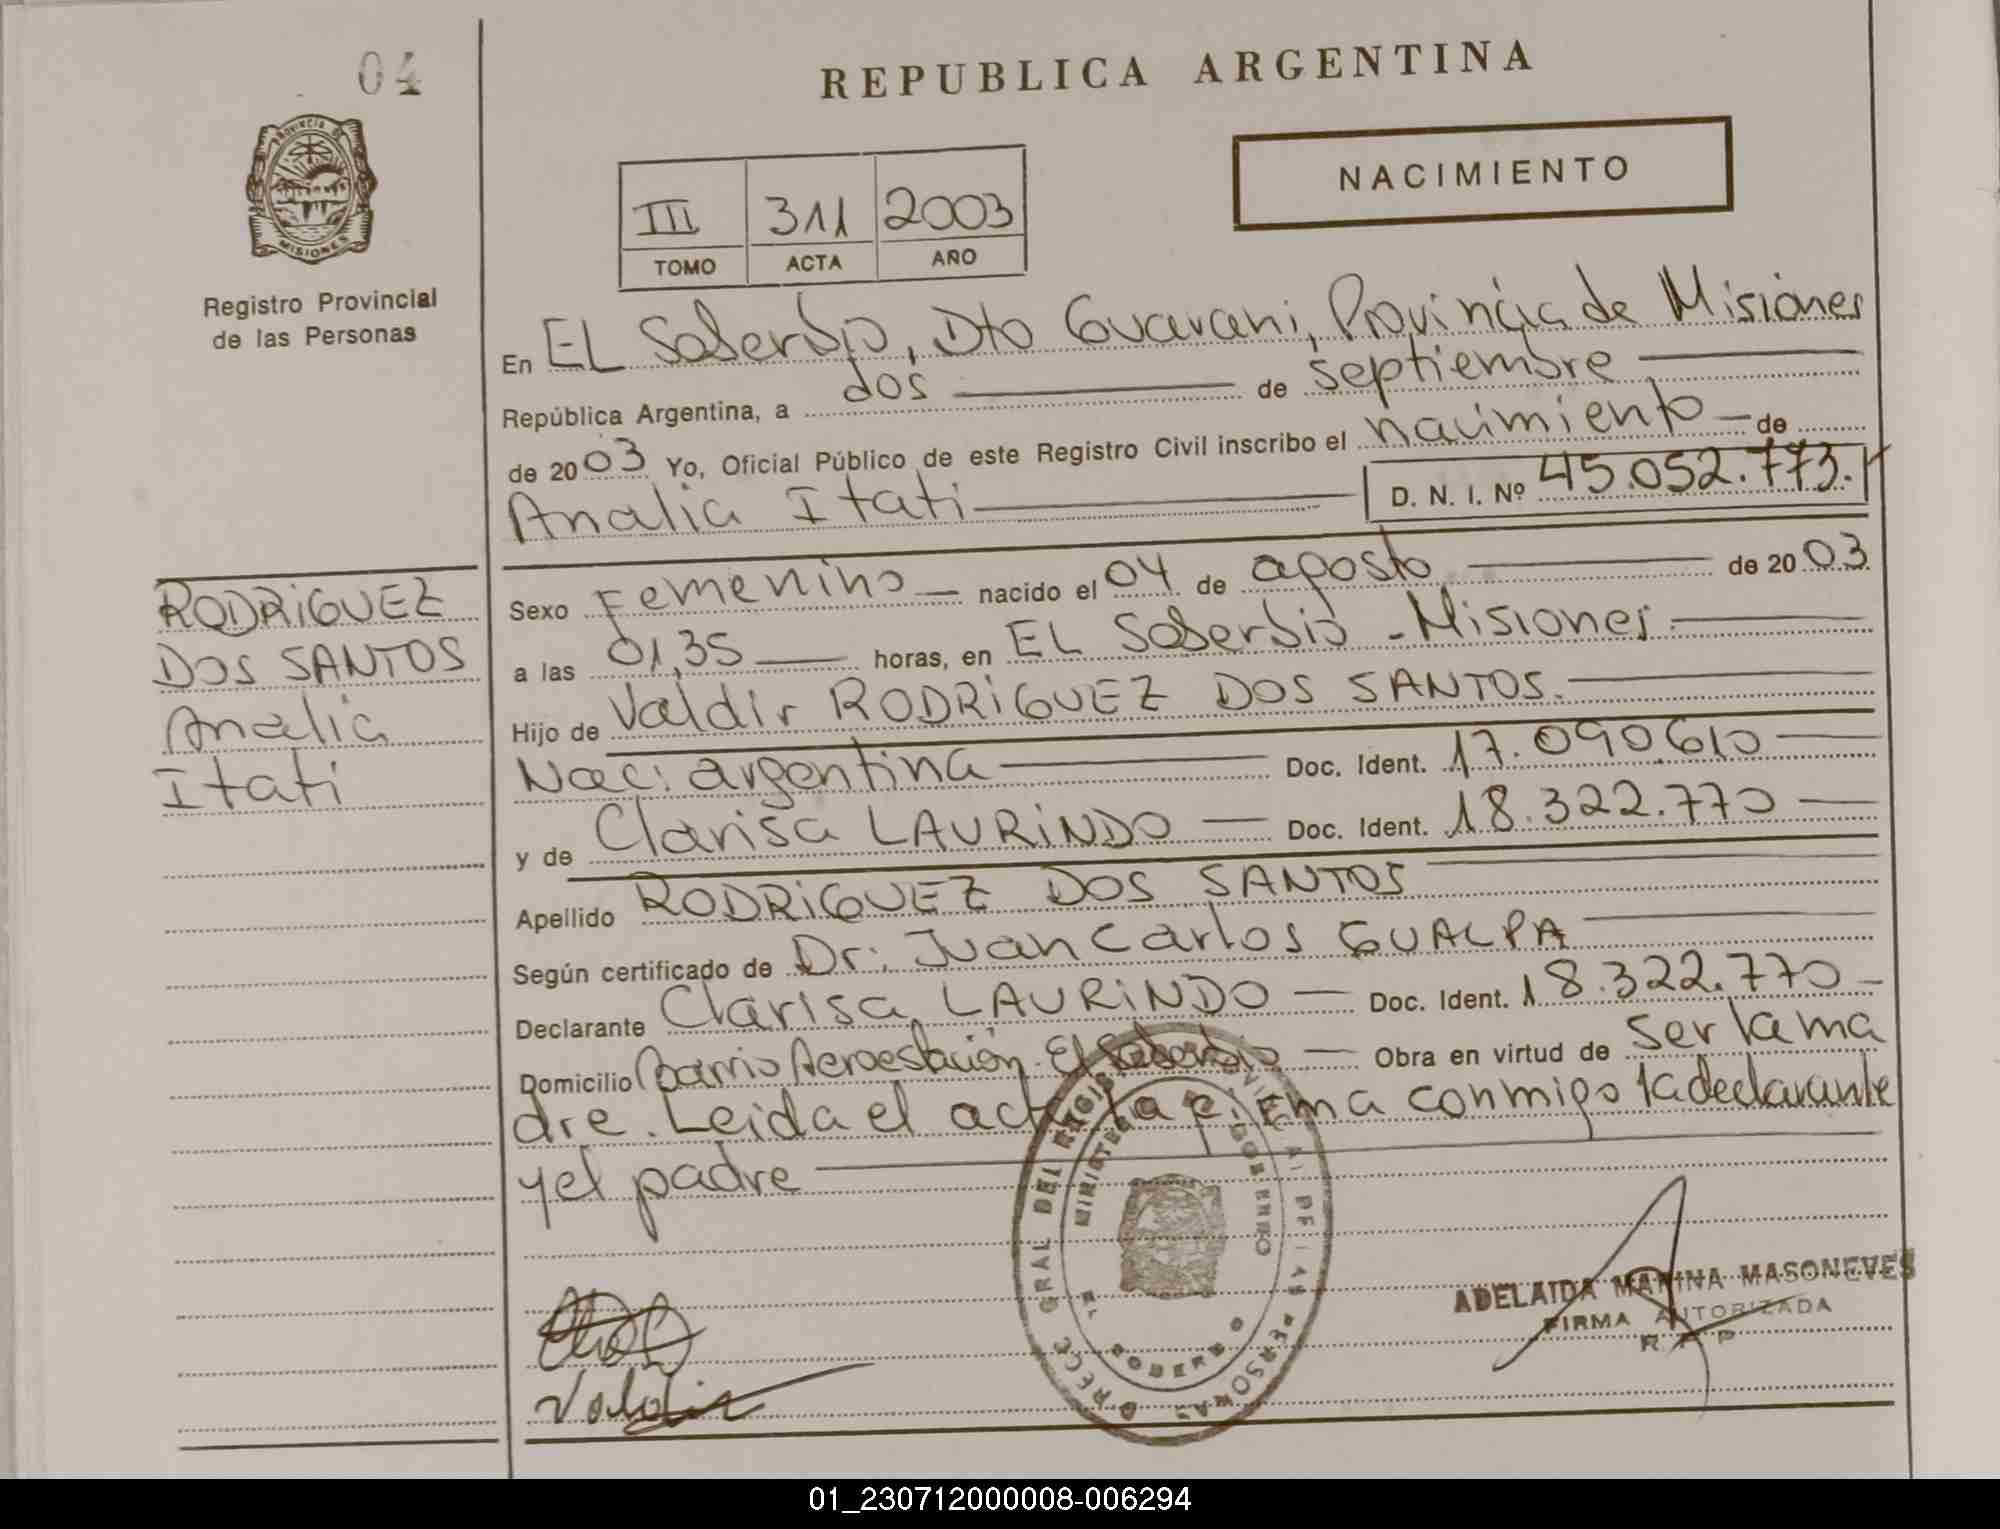 04
REPUBLICA ARGENTINA
PROVINCIA DE
MISIONES
Registro Provincial
de las Personas
NACIMIENTO
III 311 2003
TOMO ACTA AÑO
En EL Soberbio, Dto Guarani, Provincia de Misiones
República Argentina, a dos de septiembre
de 2003 Yo, Oficial Público de este Registro Civil inscribo el nacimiento de
Analia Itati D. N. I. Nº 45.052.773.
RODRIGUEZ
DOS SANTOS
Analia
Itati
Sexo Femenino nacido el 04 de agosto de 2003
a las 01,35 horas, en EL Soberbio - Misiones
Hijo de Valdir RODRIGUEZ DOS SANTOS.
Nac: argentina Doc. Ident. 17.090.610
y de Clarisa LAURINDO Doc. Ident. 18.322.770
Apellido RODRIGUEZ DOS SANTOS
Según certificado de Dr: Juan Carlos GUALPA
Declarante Clarisa LAURINDO Doc. Ident. 18.322.770
Domicilio Barrio Aeroestación El Soberbio Obra en virtud de ser la ma
dre. Leida el acta la firma conmigo la declarante
y el padre
MINISTERIO GOBIERNO
ADELAIDA MARINA MASONEVES
FIRMA AUTORIZADA
R. P. P
Valdir
01_230712000008-006294